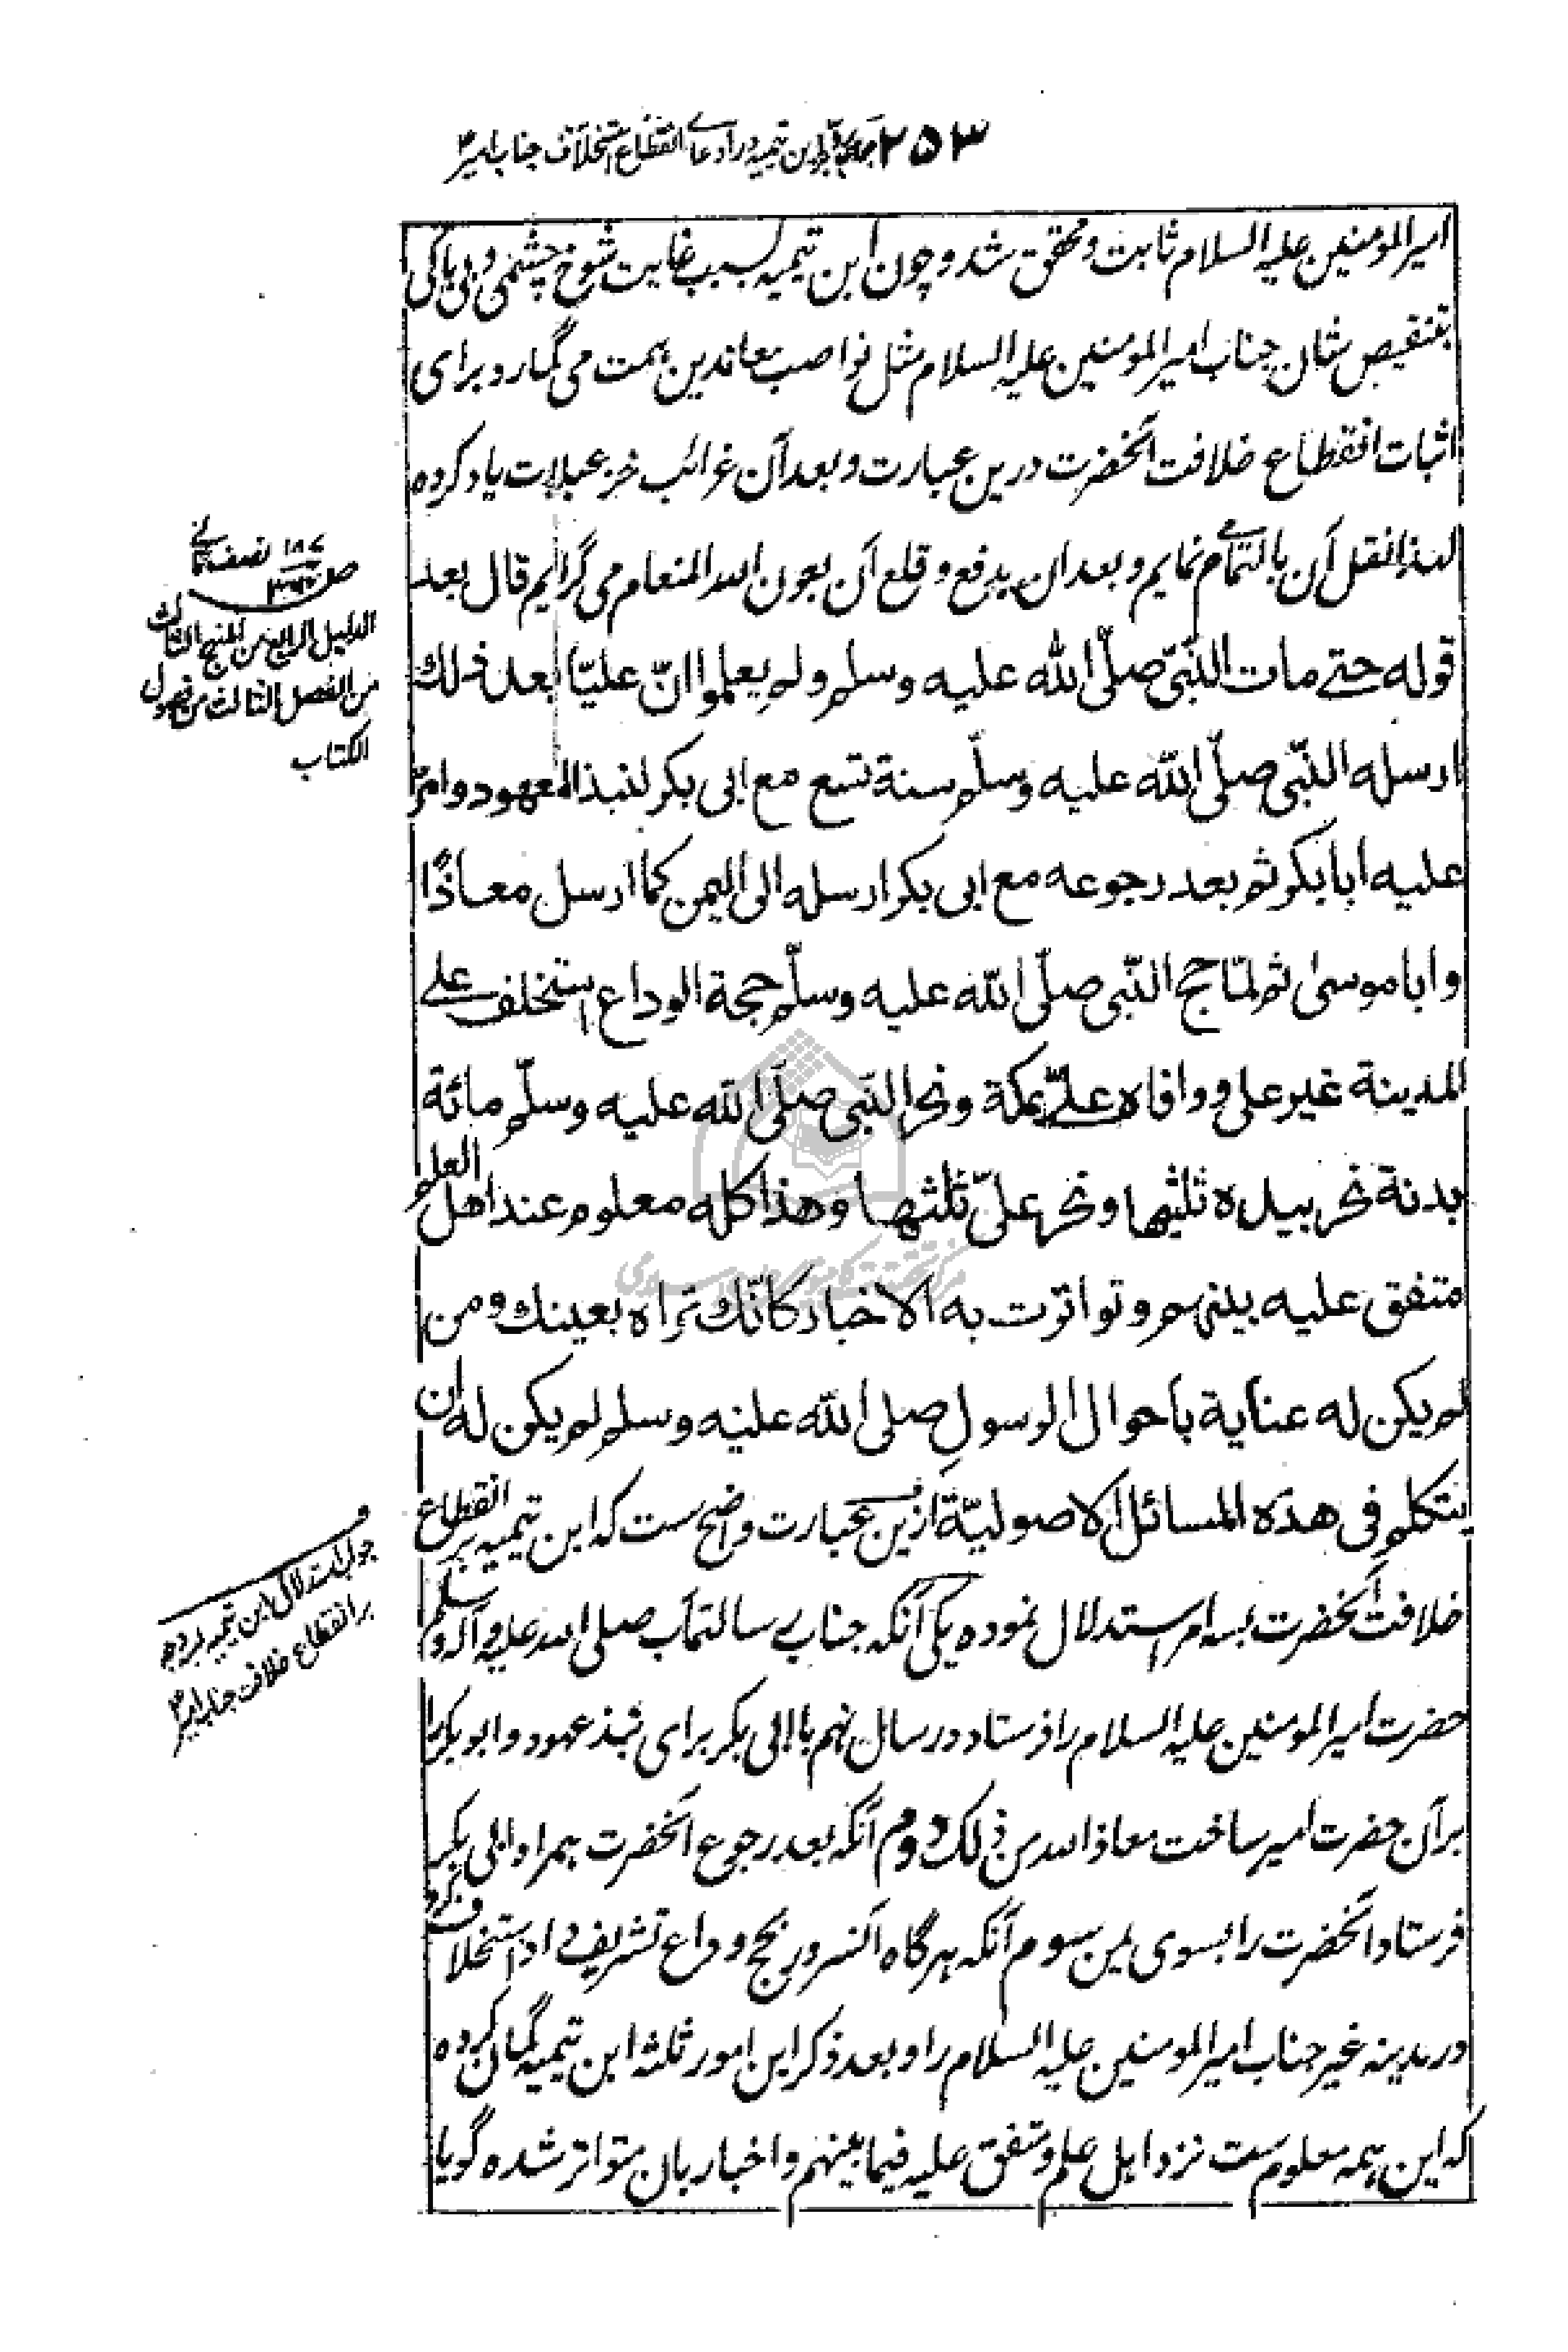 ۲۵۳ جواب ابن تیمیه در ادعای انقطاع استخلاف جناب امیرؑ
امیرالمومنین علیه السلام ثابت و محقق شد و چون ابن تیمیه بسبب غایت شوخ چشمی و بی باکی
بتنقیص شان جناب امیرالمومنین علیه السلام مثل نواصب معاندین همت می گمارد و برای
اثبات انقطاع خلافت آنحضرت درین عبارت و بعد آن غرائب خزعبلات یاد کرده
لهذا نقل آن بالتمام نمایم و بعد ان بدفع و قلع آن بعون الله المنعام می گرایم قال بعد
قوله حتی مات النّبیّ صلّی الله علیه وسلم ولم یعلموا انّ علیّا بعد ذلك
ارسله النّبی صلّی الله علیه وسلّم سنة تسع مع ابی بکر لنبذ العهود وامّر
علیه ابا بکر ثم بعد رجوعه مع ابی بکر ارسله الی الیمن کما ارسل معاذًا
وابا موسیٰ ثم لمّا حج النّبی صلّی الله علیه وسلّم حجة الوداع استخلف علی
المدینة غیر علی ووافاه علیّ بمکة ونحر النّبی صلّی الله علیه وسلّم مائة
بدنة نحر بیده ثلثیها ونحر علیّ ثلثها وهذا کله معلوم عند اهل العلم
متفق علیه بینهم وتواترت به الاخبار کانّك تراه بعینك ومن
لم یکن له عنایة باحوال الرسول صلی الله علیه وسلم لم یکن له ان
یتکلم فی هذه المسائل الاصولیّة ازین عبارت واضح ست که ابن تیمیه بر انقطاع
خلافت آنحضرت بسه امر استدلال نموده یکی آنکه جناب رسالتمآب صلی الله علیه وآله وسلم
حضرت امیرالمومنین علیه السلام را فرستاد در سال نهم با ابی بکر برای نبذ عهود و ابوبکر را
بر آن حضرت امیر ساخت معاذ الله من ذلک دوم آنکه بعد رجوع آنحضرت همراه ابی بکر
فرستاد آنحضرت را بسوی یمن سوم آنکه هرگاه آنسرور بحج وداع تشریف داد استخلاف کرد
در مدینه غیر جناب امیرالمومنین علیه السلام را و بعد ذکر این امور ثلثه ابن تیمیه گمان کرده
که این همه معلوم ست نزد اهل علم و متفق علیه فیما بینهم و اخبار بان متواتر شده گویا
الدلیل الرابع من المنهج الثالث
من الفصل الثالث من فصول
الکتاب
جواب استدلال ابن تیمیه
بر انقطاع خلافت جناب امیرؑ